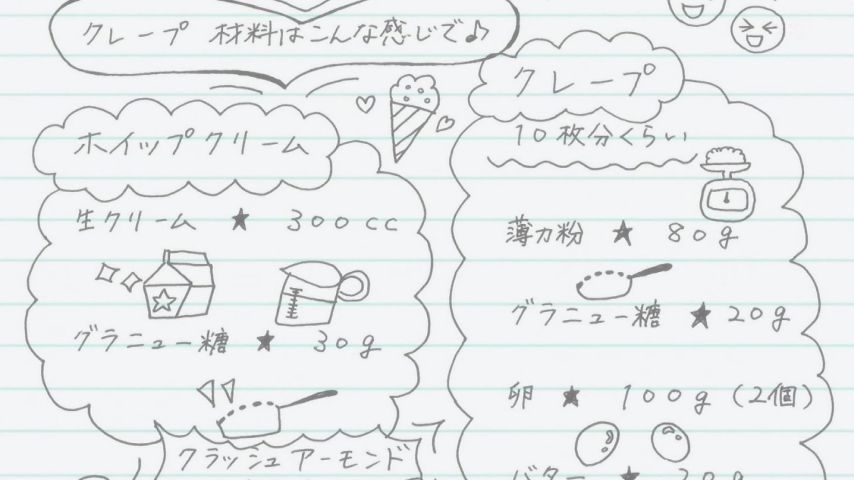 クレープ 材料はこんな感じで♪
ホイップクリーム
生クリーム ★ 300cc
グラニュー糖 ★ 30g
クラッシュアーモンド
クレープ
10枚分くらい
薄力粉 ★ 80g
グラニュー糖 ★ 20g
卵 ★ 100g (2個)
バター ★ 20g